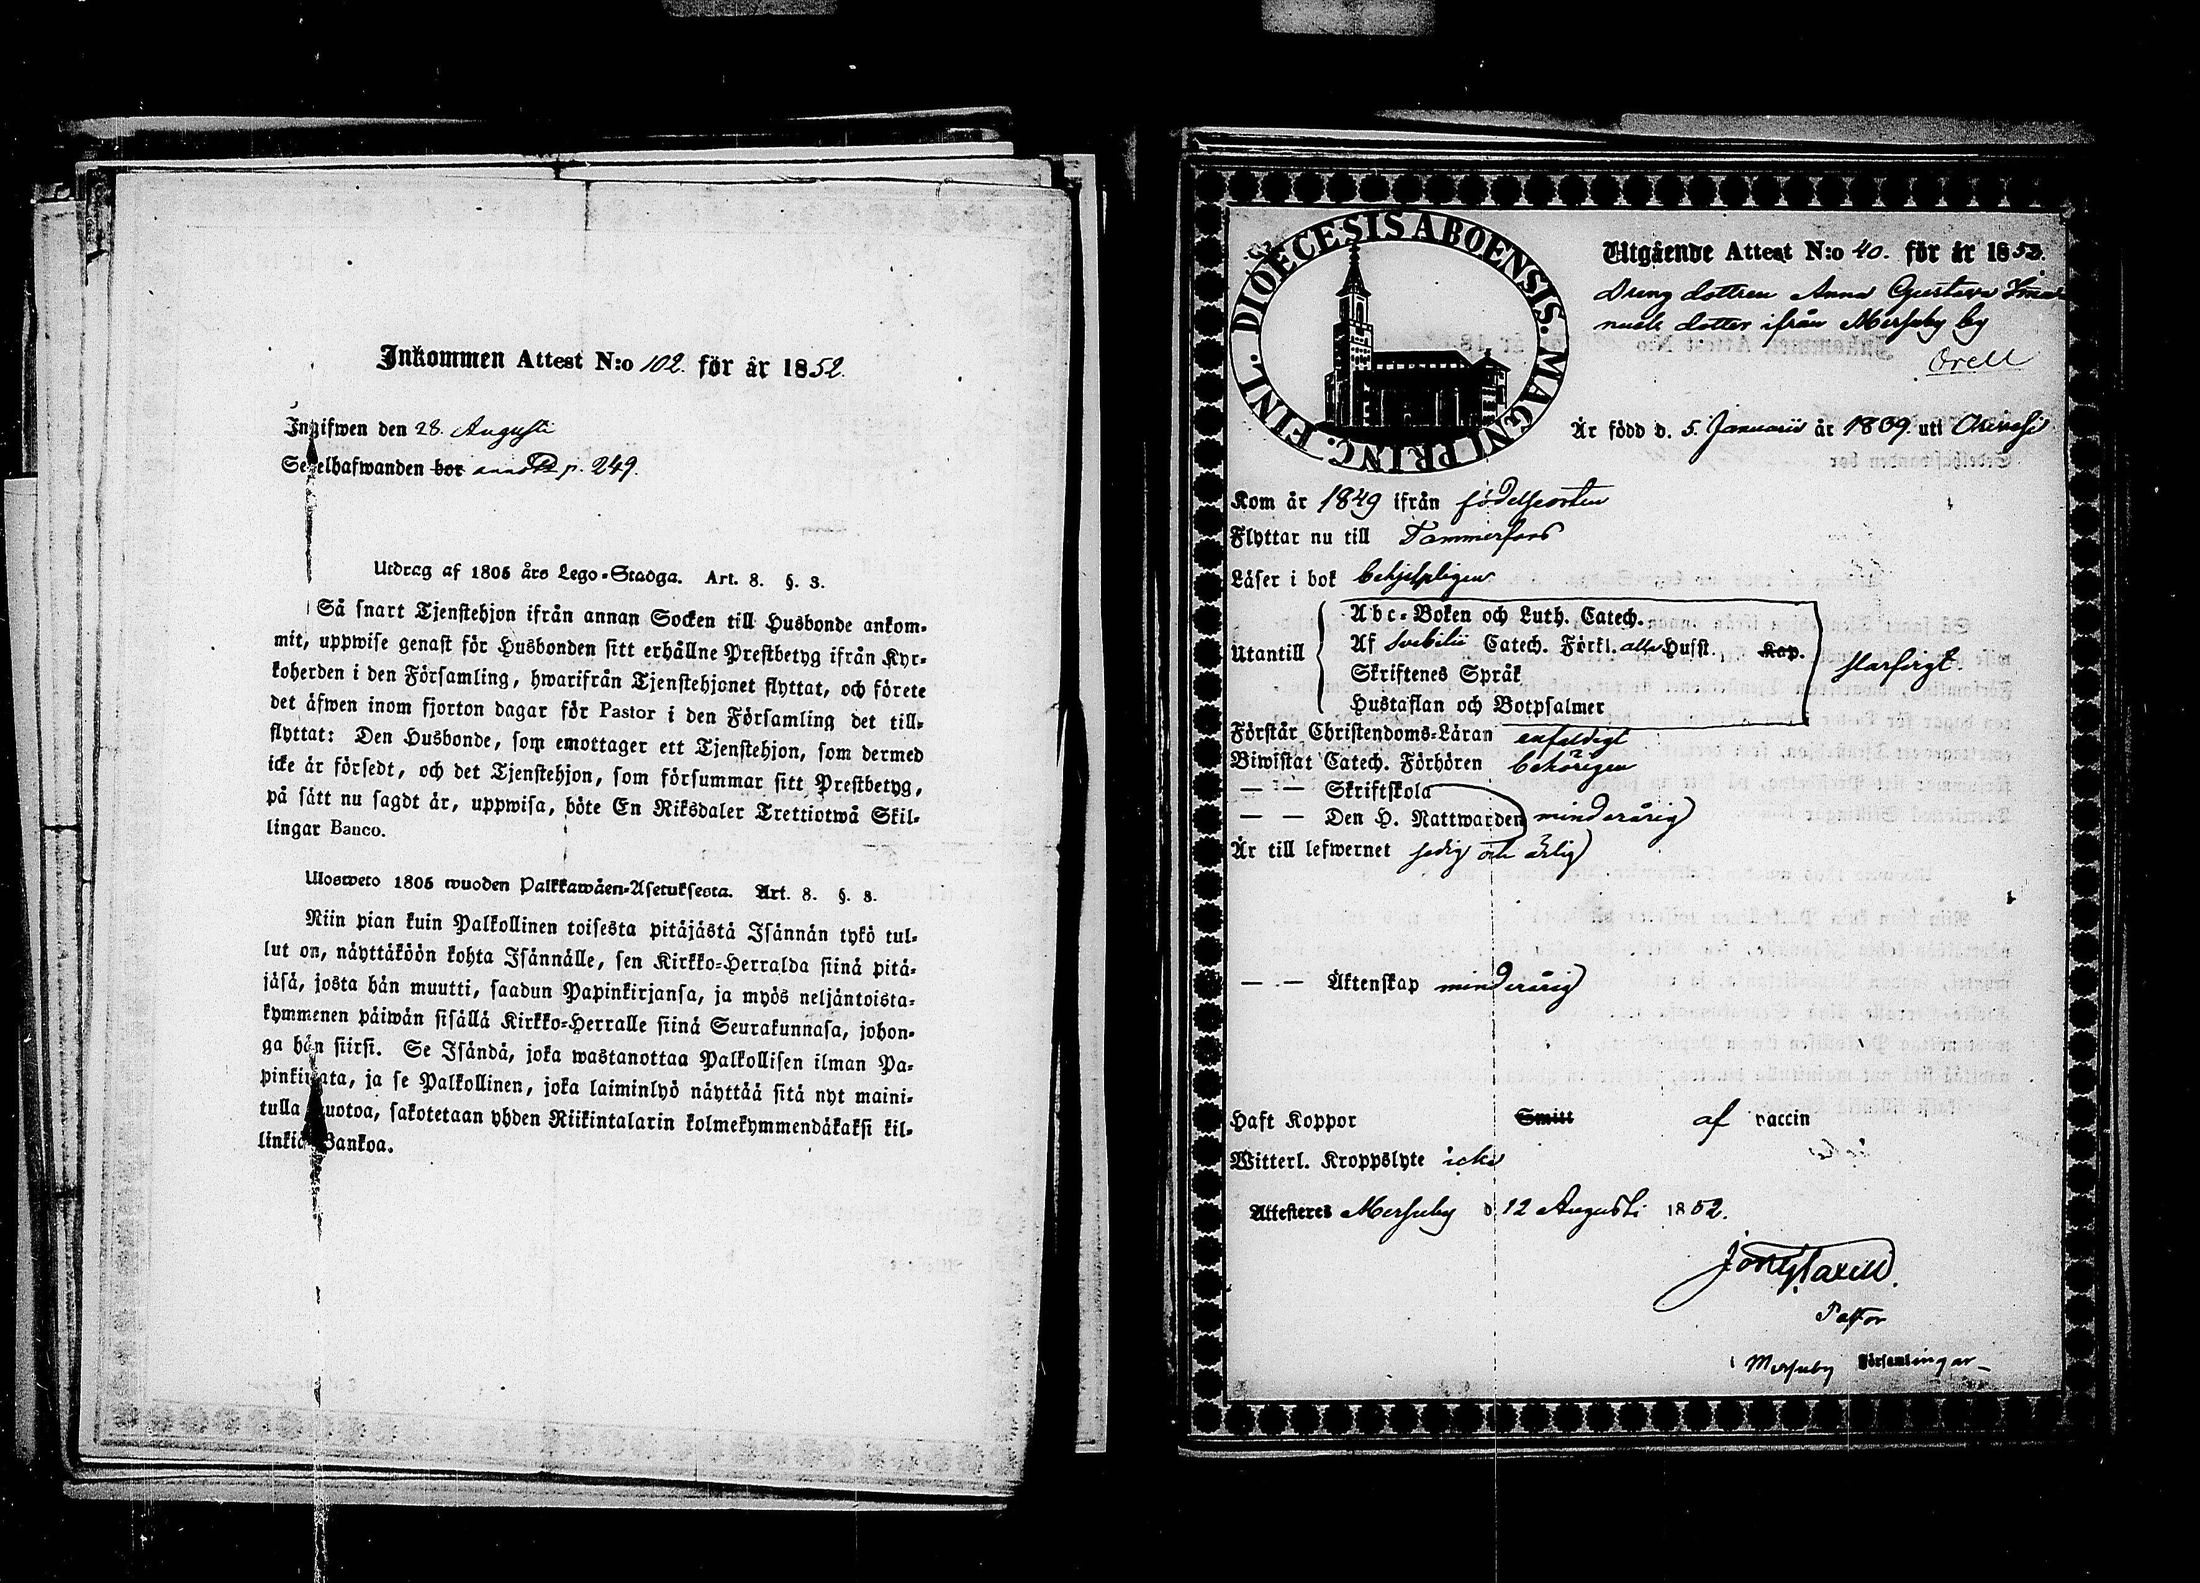 Inkommen Attest N:o 102. för år 1852.
Ingifwen den 28. Augusti
Sedelhafwanden bor p. 249.
Utdrag af 1805 års Lego-Stadga. Art. 8. §. 3.
Så snart Tjenstehjon ifrån annan Socken till Husbonde ankom-
mit, uppwise genast för Husbonden sitt erhållne Prestbetyg ifrån Kyr-
koherden i den Församling, hwarifrån Tjenstehjonet flyttat, och förete
det äfwen inom fjorton dagar för Pastor i den Församling det till-
flyttat: Den Husbonde, som emottager ett Tjenstehjon, som dermed
icke är försedt, och det Tjenstehjon, som försummar sitt Prestbetyg,
på sätt nu sagdt är, uppwisa, böte En Riksdaler Trettiotwå Skil-
lingar Banco.
Ulosweto 1805 wuoden Palkkawäen-Asetuksesta. Art. 8. §. 3.
Niin pian kuin Palkollinen toisesta pitäjästä Isännän tykö tul-
lut on, näyttäköön kohta Isännälle, sen Kirkko-Herralda siinä pitä-
jäsä, josta hän muutti, saadun Papinkirjansa, ja myös neljäntoista-
kymmenen päiwän sisällä Kirkko-Herralle siinä Seurakunnasa, johon-
ga hän siirsi. Se Isändä, joka wastanottaa Palkollisen ilman Pa-
pinkirjata, ja se Palkollinen, joka laiminlyö näyttää sitä nyt maini-
tulla muotoa, sakotetaan yhden Riikintalarin kolmekymmendäkaksi kil-
linkiä Bankoa.
DIOECESIS ABOENSIS. MAGNI PRINC. FINL.
Utgående Attest N:o 40. för år 1852.
Dreng dottren Anna Gustava
dotter ifrån Merjuby by
Orell
Är född d. 5. Januarii år 1839. uti Orivesi
Kom år 1849 ifrån födelseorten
Flyttar nu till Tammerfors
Läser i bok behjelpligen
Utantill
Abc-Boken och Luth. Catech.
Af Svebilii Catech. Förkl. alla Hufst. Kap.
Skriftenes Språk
Hustaflan och Botpsalmer
Försvarligt
Förstår Christendoms-Läran enfaldigt
Biwistat Catech. Förhören behörigen
— — Skriftskola
— — Den H. Nattwarden minderårig
Är till lefwernet sedig och ärlig
— — Äktenskap minderårig
Haft Koppor Smitt af vaccin
Witterl. Kroppslyte icke
Attesteres Merjuby d. 12 Augusti 1852.
Pastor
i Merjuby Församlingar